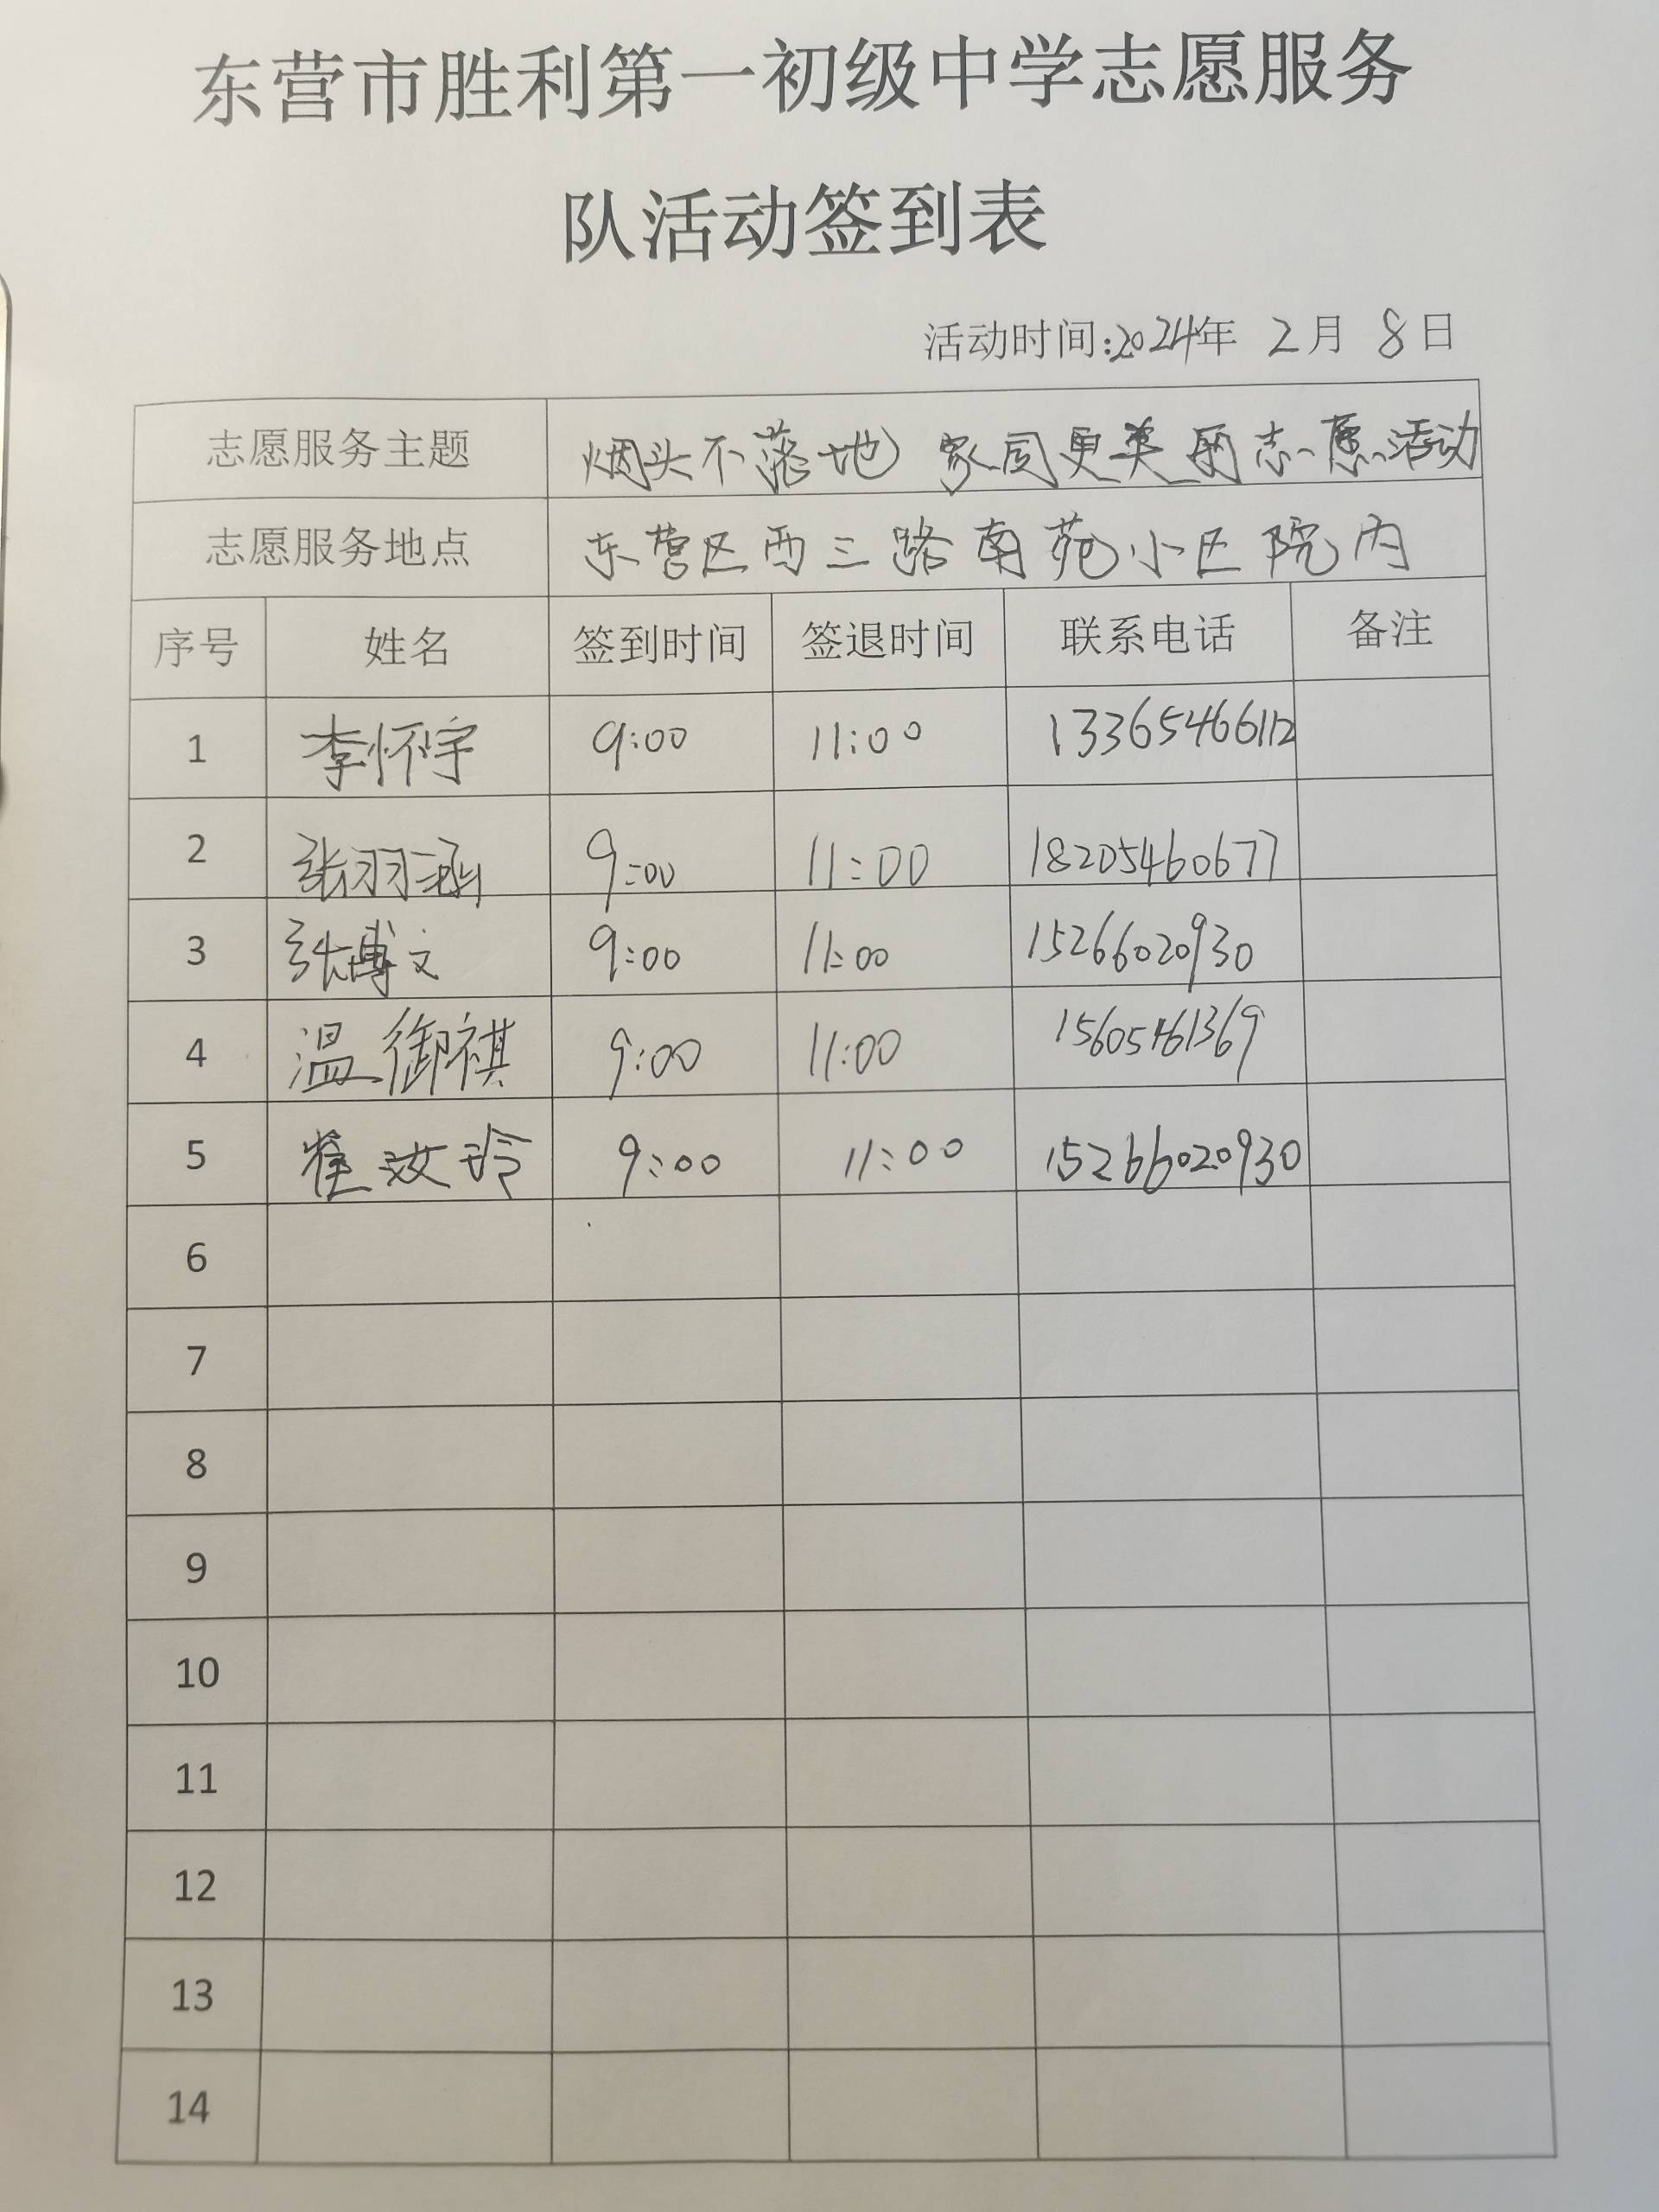 东营市胜利第一初级中学志愿服务
队活动签到表
活动时间:2024年 2月 8日
志愿服务主题 烟头不落地 家园更美丽志愿活动
志愿服务地点 东营区西三路南苑小区院内
序号 姓名 签到时间 签退时间 联系电话 备注
1 李怀宇 9:00 11:00 13365466112
2 张羽涵 9:00 11:00 18205460677
3 张博文 9:00 11:00 15266020930
4 温御祺 9:00 11:00 15605461369
5 崔汶玲 9:00 11:00 15266020930
6
7
8
9
10
11
12
13
14